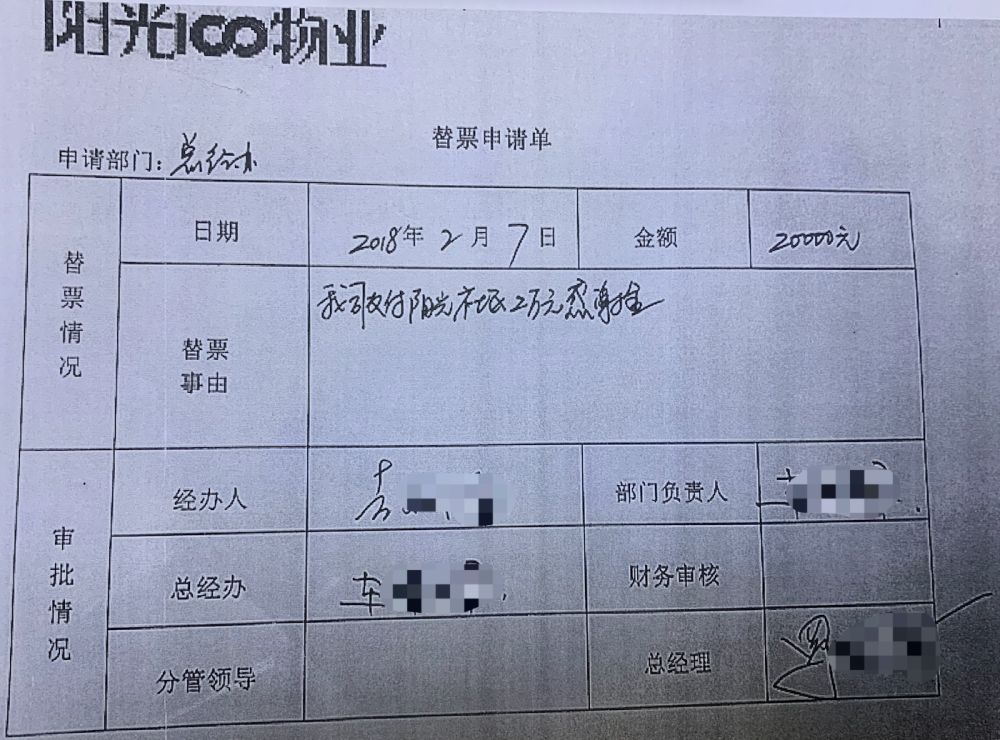 阳光100物业
替票申请单
申请部门：总经办
替票情况
日期
2018年2月7日
金额
20000元
替票事由
我司支付阳光社区2万元感谢金
审批情况
经办人
部门负责人
总经办
车
财务审核
分管领导
总经理